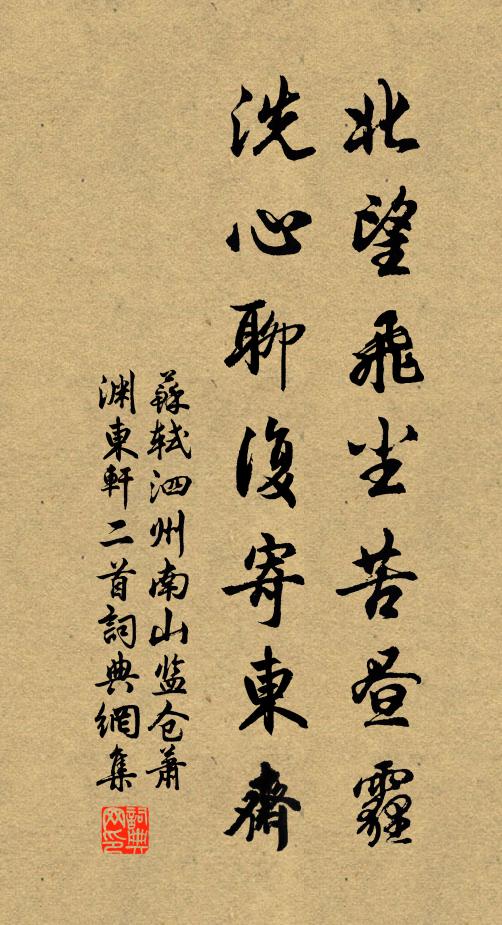 北望飛尘苦昼霾
洗心聊復寄東齋
蘇軾泗州南山监仓萧
渊東軒二首詞典網集
詞典网印